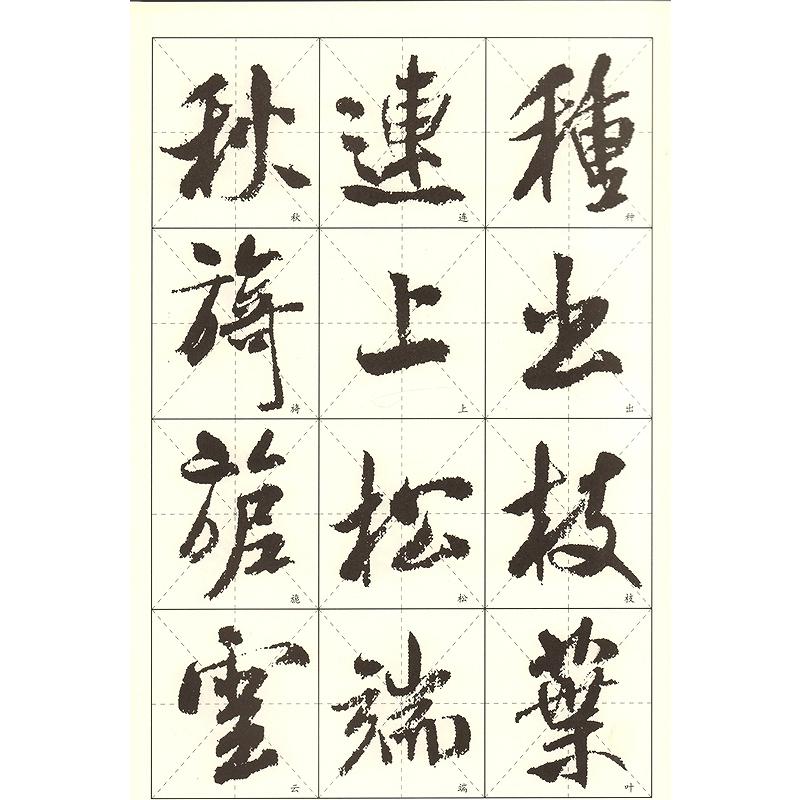 種出枝葉
种出枝叶
連上松端
连上松端
秋旖旎雲
秋旖旎云